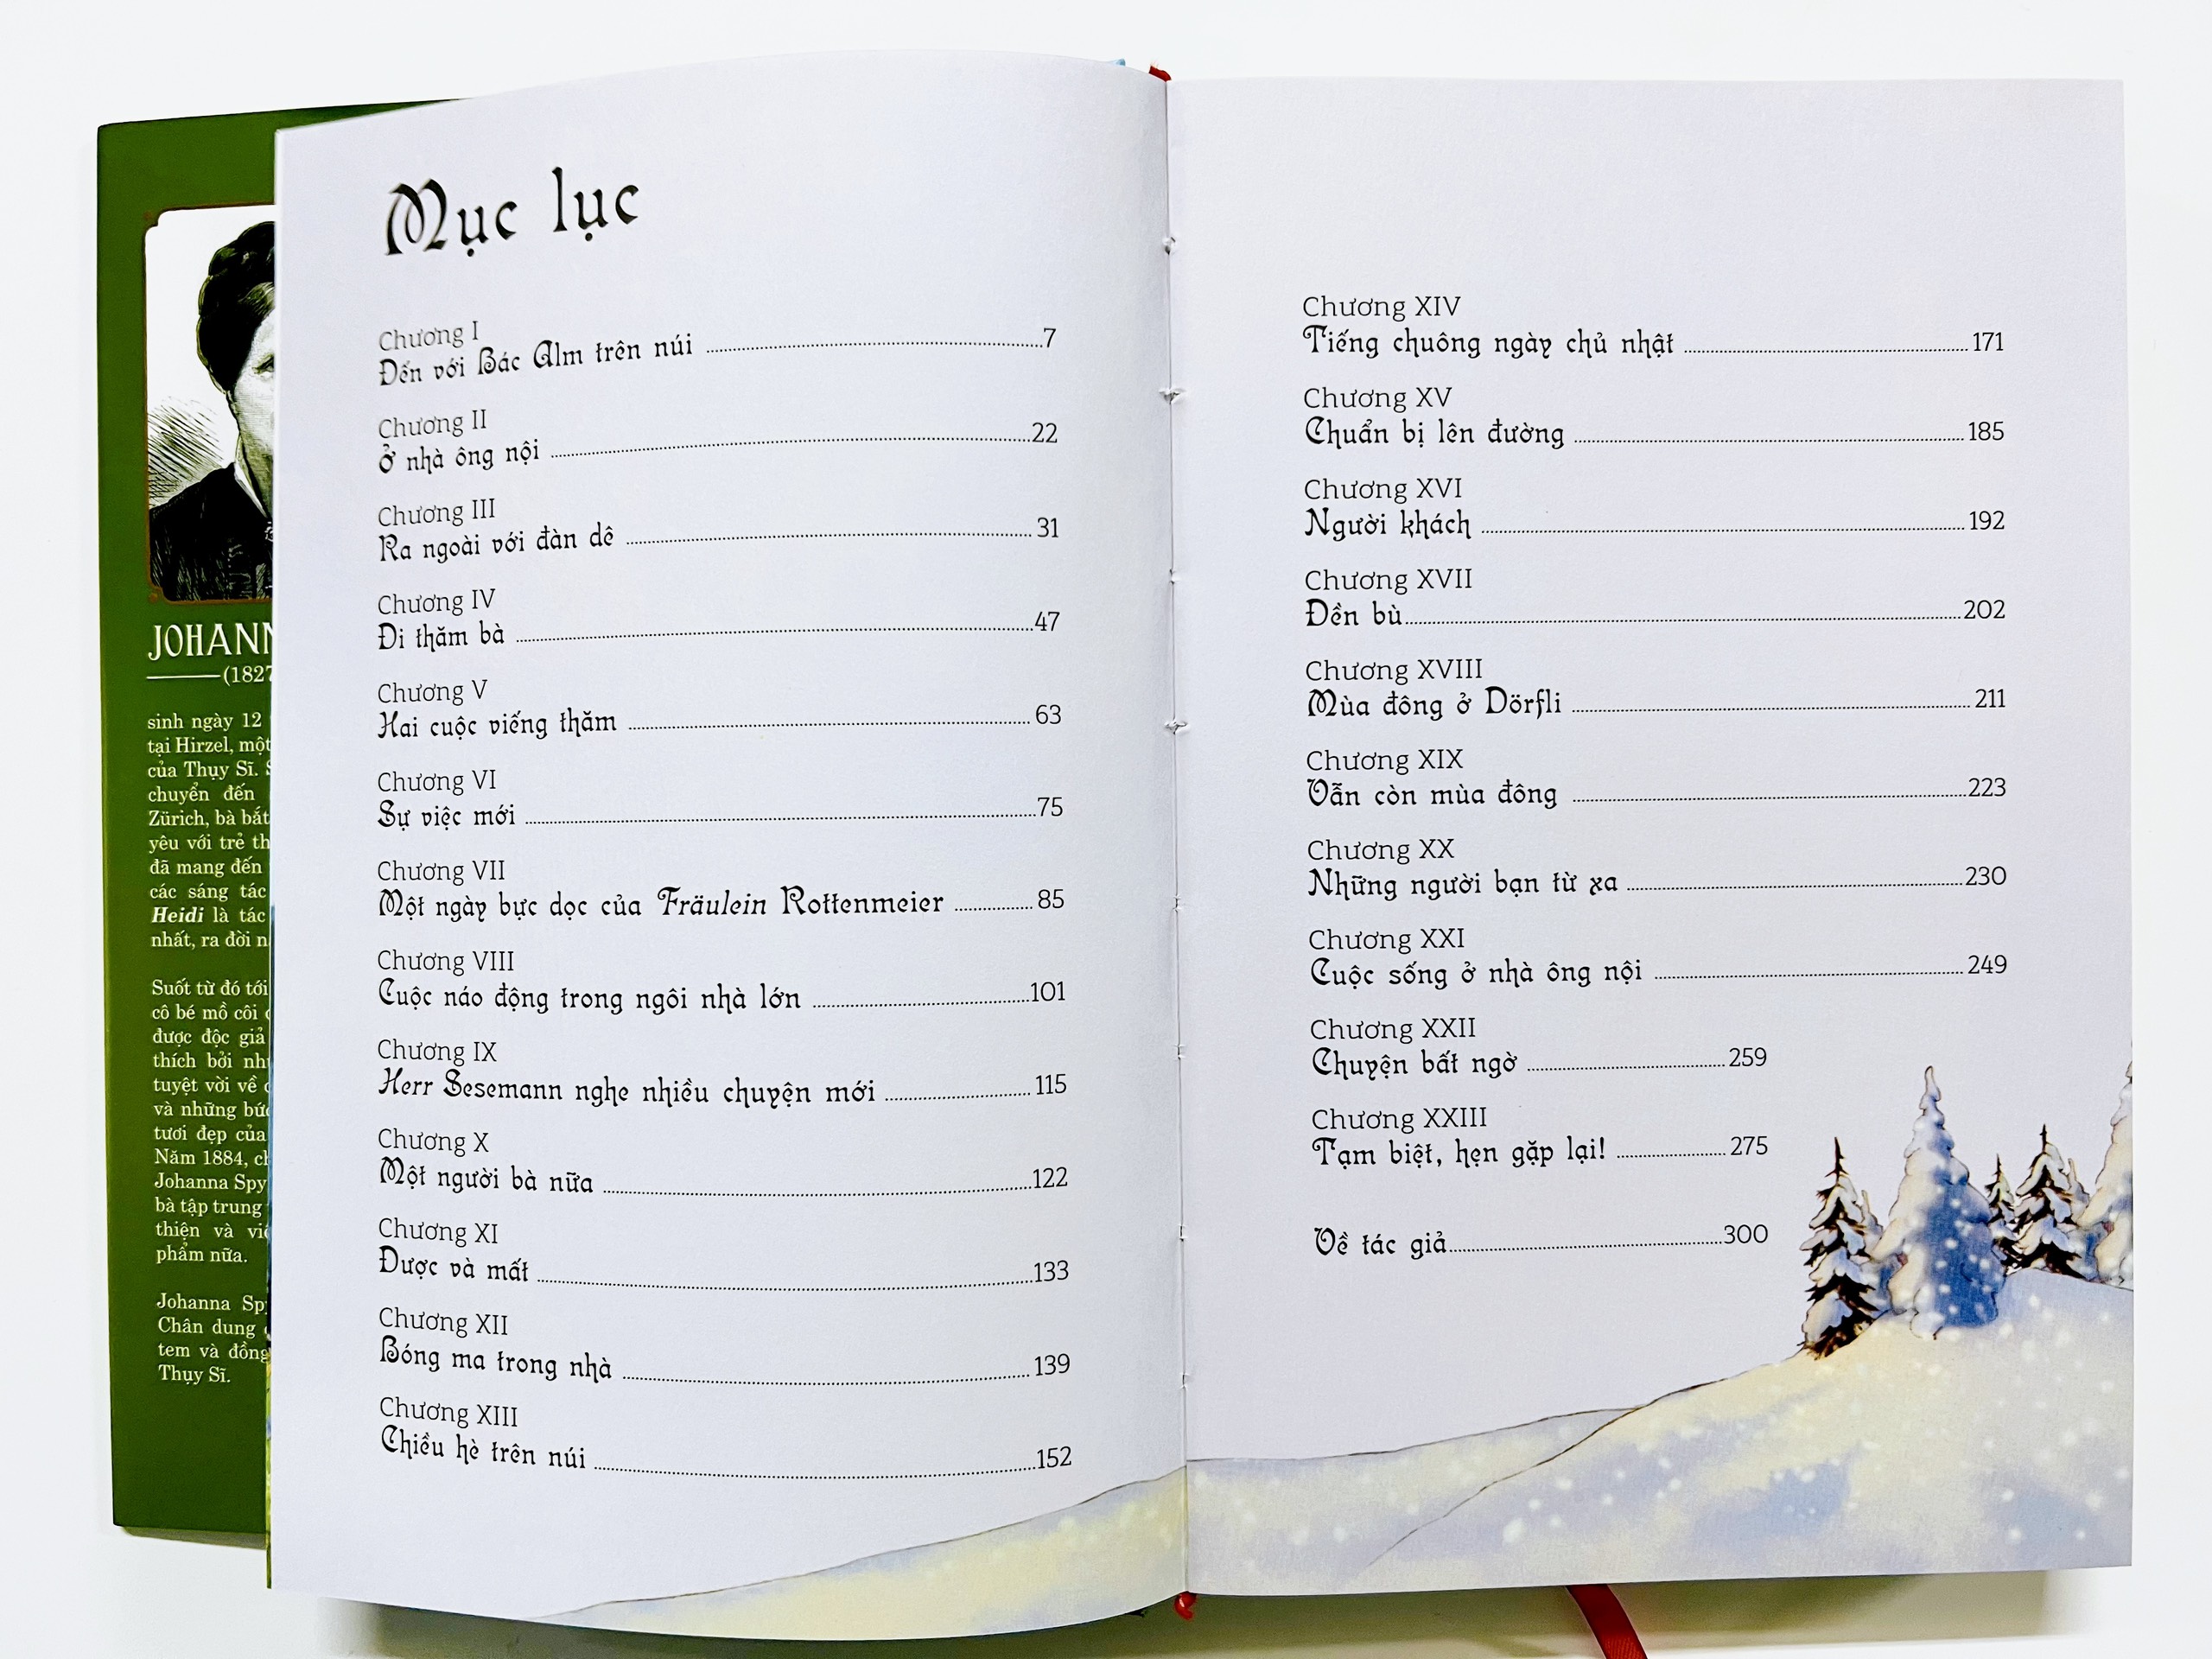 JOHANN
(1827
sinh ngày 12
tại Hirzel, một
của Thụy Sĩ.
chuyển đến
Zürich, bà bắt
yêu với trẻ
đã mang đến
các sáng tác
Heidi là tác
nhất, ra đời
Suốt từ đó tới
cô bé mồ côi
được độc giả
thích bởi
tuyệt vời về
và những
tươi đẹp của
Năm 1884,
Johanna Spy
bà tập trung
thiện và
phẩm nữa.
Johanna
Chân dung
tem và đồng
Thụy Sĩ.
Mục lục
Chương I
Đến với Bác Alm trên núi ........ 7
Chương II
Ở nhà ông nội ........ 22
Chương III
Ra ngoài với đàn dê ........ 31
Chương IV
Đi thăm bà ........ 47
Chương V
Hai cuộc viếng thăm ........ 63
Chương VI
Sự việc mới ........ 75
Chương VII
Một ngày bực dọc của Fräulein Rottenmeier ........ 85
Chương VIII
Cuộc náo động trong ngôi nhà lớn ........ 101
Chương IX
Herr Sesemann nghe nhiều chuyện mới ........ 115
Chương X
Một người bà nữa ........ 122
Chương XI
Được và mất ........ 133
Chương XII
Bóng ma trong nhà ........ 139
Chương XIII
Chiều hè trên núi ........ 152
Chương XIV
Tiếng chuông ngày chủ nhật ........ 171
Chương XV
Chuẩn bị lên đường ........ 185
Chương XVI
Người khách ........ 192
Chương XVII
Đền bù ........ 202
Chương XVIII
Mùa đông ở Dörfli ........ 211
Chương XIX
Vẫn còn mùa đông ........ 223
Chương XX
Những người bạn từ xa ........ 230
Chương XXI
Cuộc sống ở nhà ông nội ........ 249
Chương XXII
Chuyện bất ngờ ........ 259
Chương XXIII
Tạm biệt, hẹn gặp lại! ........ 275
Về tác giả ........ 300